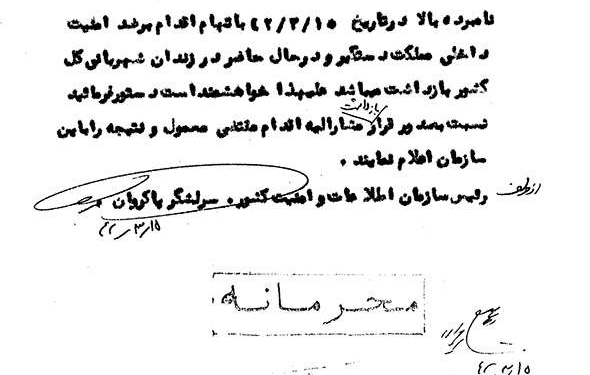 نامبرده بالا در تاریخ ۴۲/۳/۱۵ باتهام اقدام برضد امنیت
داخلی مملکت دستگیر و در حال حاضر در زندان شهربانی کل
کشور بازداشت میباشد علیهذا خواهشمند است دستور فرمائید
بازداشت
نسبت بصدور قرار مشارالیه اقدام مقتضی معمول و نتیجه را باین
سازمان اعلام نمایند .
از طرف
رئیس سازمان اطلاعات و امنیت کشور . سرلشگر پاکروان
۴۲/۳/۱۵
محرمانه
۴۲/۳/۱۵